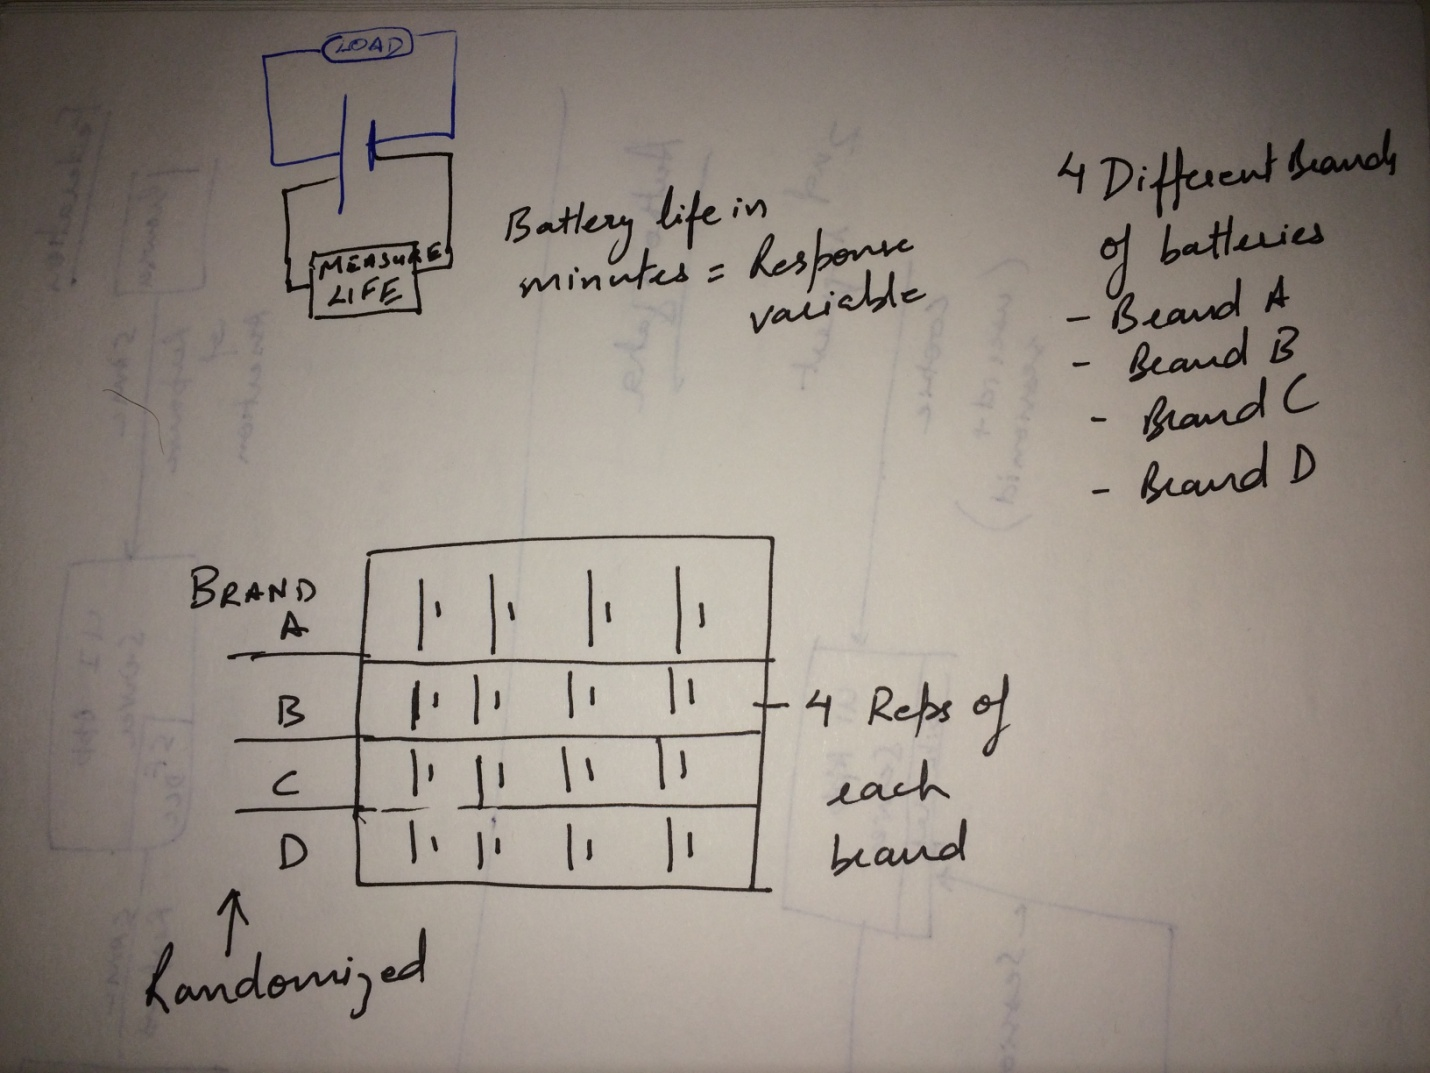 LOAD
MEASURE
LIFE
Battery life in
minutes = Response
variable
4 Different Brands
of batteries
- Brand A
- Brand B
- Brand C
- Brand D
BRAND
A
B
C
D
4 Reps of
each
brand
Randomized